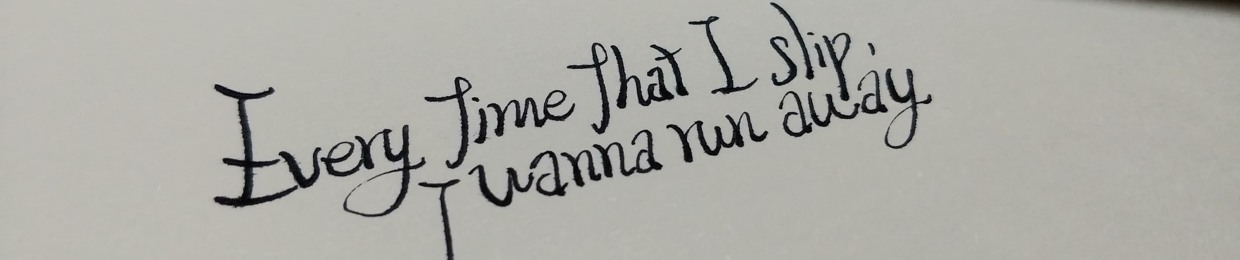 Every time that I slip,
I wanna run away